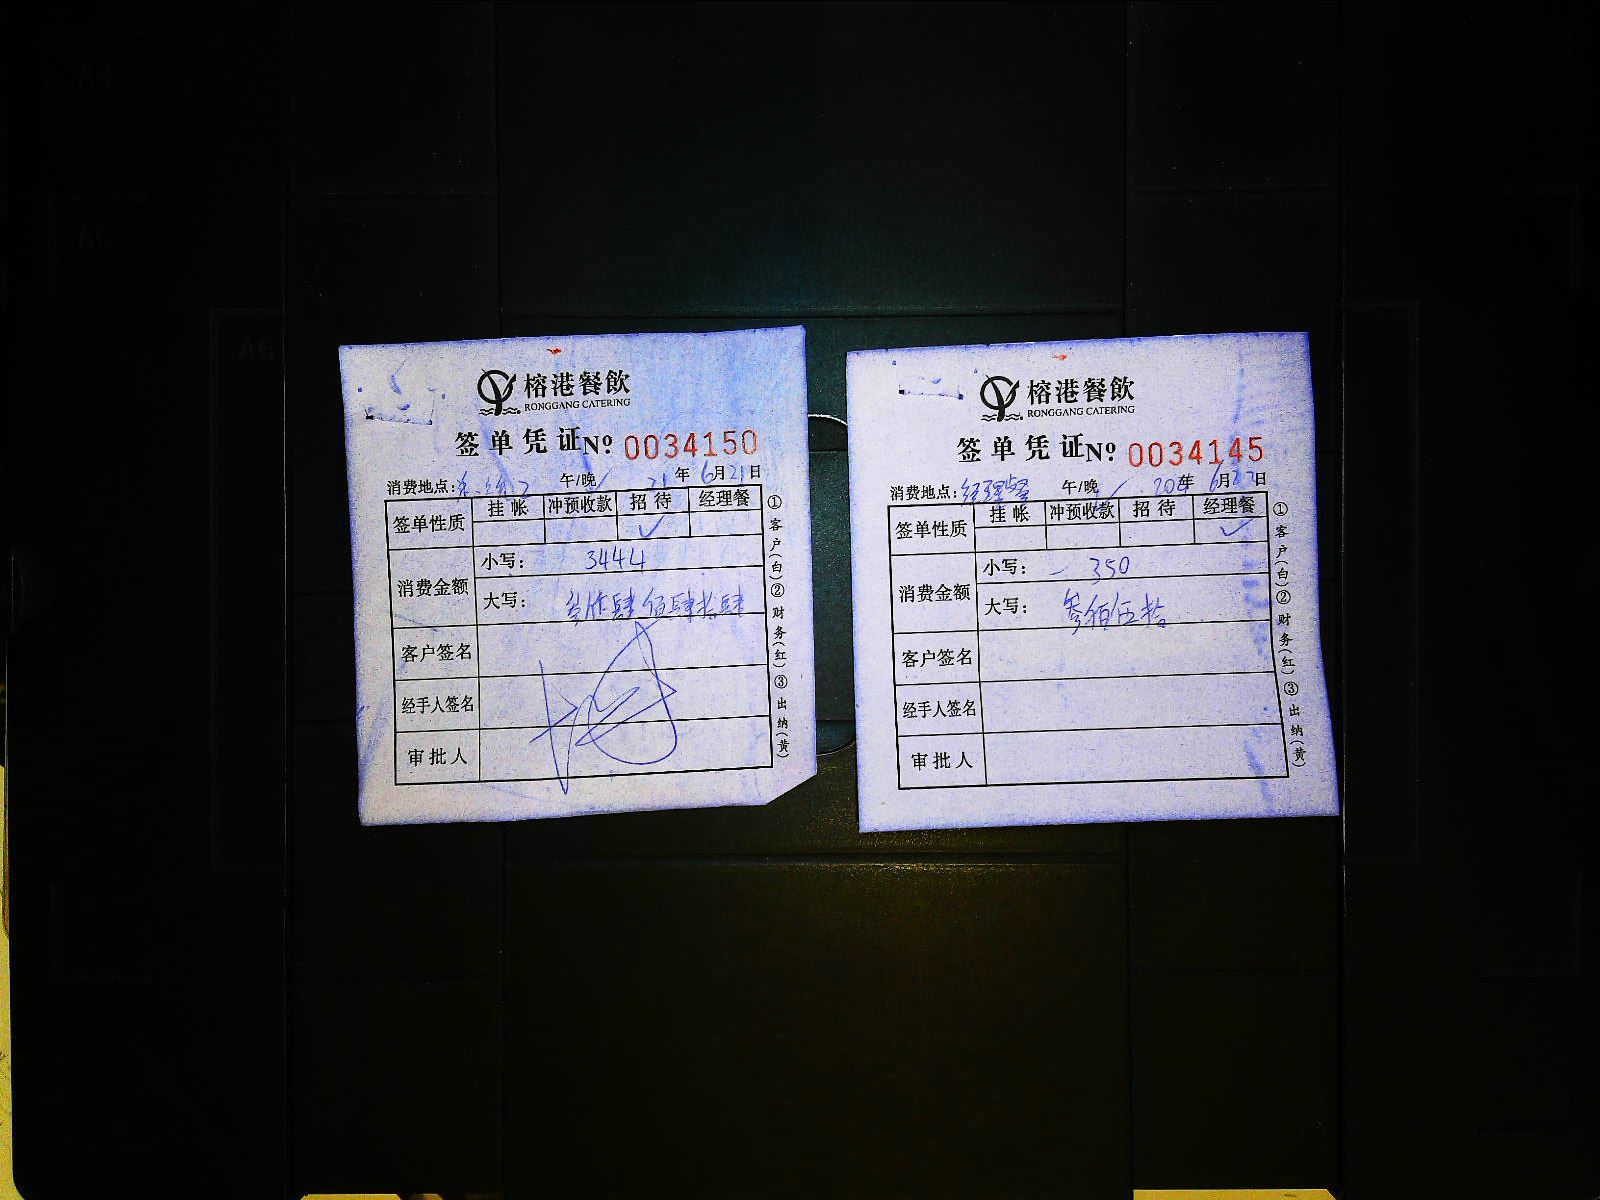 榕港餐飲
RONGGANG CATERING
签单凭证 Nº 0034150
消费地点: 午/晚 21年6月21日
签单性质 挂帐 冲预收款 招待 经理餐
✓
消费金额 小写: 3444
大写: 叁仟肆佰肆拾肆
客户签名
经手人签名
审批人
①客户(白)②财务(红)③出纳(黄)
榕港餐飲
RONGGANG CATERING
签单凭证 Nº 0034145
消费地点: 经理餐 午/晚 20年6月22日
签单性质 挂帐 冲预收款 招待 经理餐
✓
消费金额 小写: 350
大写: 叁佰伍拾
客户签名
经手人签名
审批人
①客户(白)②财务(红)③出纳(黄)
A6